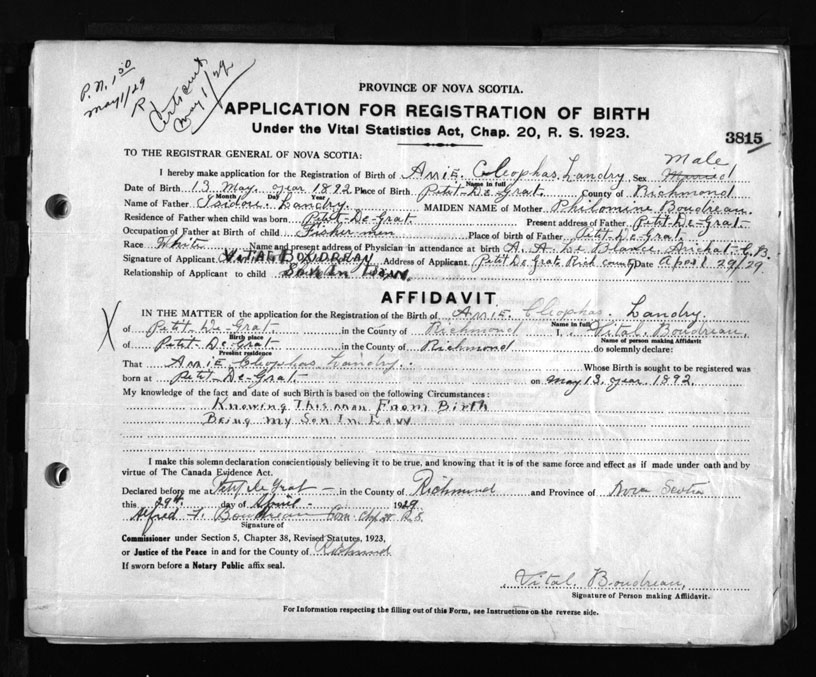 P. N. 1 50
May 1/29
R
May 1/29
PROVINCE OF NOVA SCOTIA.
APPLICATION FOR REGISTRATION OF BIRTH
Under the Vital Statistics Act, Chap. 20, R. S. 1923.
3815
TO THE REGISTRAR GENERAL OF NOVA SCOTIA:
I hereby make application for the Registration of Birth of Amie. Cleophas, Landry Sex Male
Name in full
Date of Birth 13 May. year 1892 Place of Birth Petit-De-Grat. County of Richmond
Month Day Year
Name of Father Isidore Landry. MAIDEN NAME of Mother Philomine Boudreau.
Residence of Father when child was born Petit-De-Grat Present address of Father Petit-De-Grat-
Occupation of Father at Birth of child Fisher men Place of birth of Father Petit-De-Grat.
Race White Name and present address of Physician in attendance at birth A. A. De Blance Arichat C.B.
Signature of Applicant VITAL BOUDREAU Address of Applicant Petit De Grat Rich county Date April 29/29
Relationship of Applicant to child Son In Law.
AFFIDAVIT
IN THE MATTER of the application for the Registration of the Birth of Amie. Cleophas. Landry.
Name in full
of Petit-De-Grat in the County of Richmond I, Vital. Boudreau,
Birth place
Name of person making Affidavit
of Petit-De-Grat in the County of Richmond do solemnly declare:
Present residence
That Amie Cleophas Landry. Whose Birth is sought to be registered was
born at Petit-De-Grat. on May 13. year 1892
My knowledge of the fact and date of such Birth is based on the following Circumstances:
Knowing This man From Birth
Being my Son In Law
I make this solemn declaration conscientiously believing it to be true, and knowing that it is of the same force and effect as if made under oath and by
virtue of The Canada Evidence Act.
Declared before me at Petit de Grat in the County of Richmond and Province of Nova Scotia
this 29th day of April 1929
Alfred Boudreau Com. Chp 38 R.S.
Signature of
Commissioner under Section 5, Chapter 38, Revised Statutes, 1923,
or Justice of the Peace in and for the County of Richmond
If sworn before a Notary Public affix seal.
Vital. Boudreau,
Signature of Person making Affidavit.
For Information respecting the filling out of this Form, see Instructions on the reverse side.